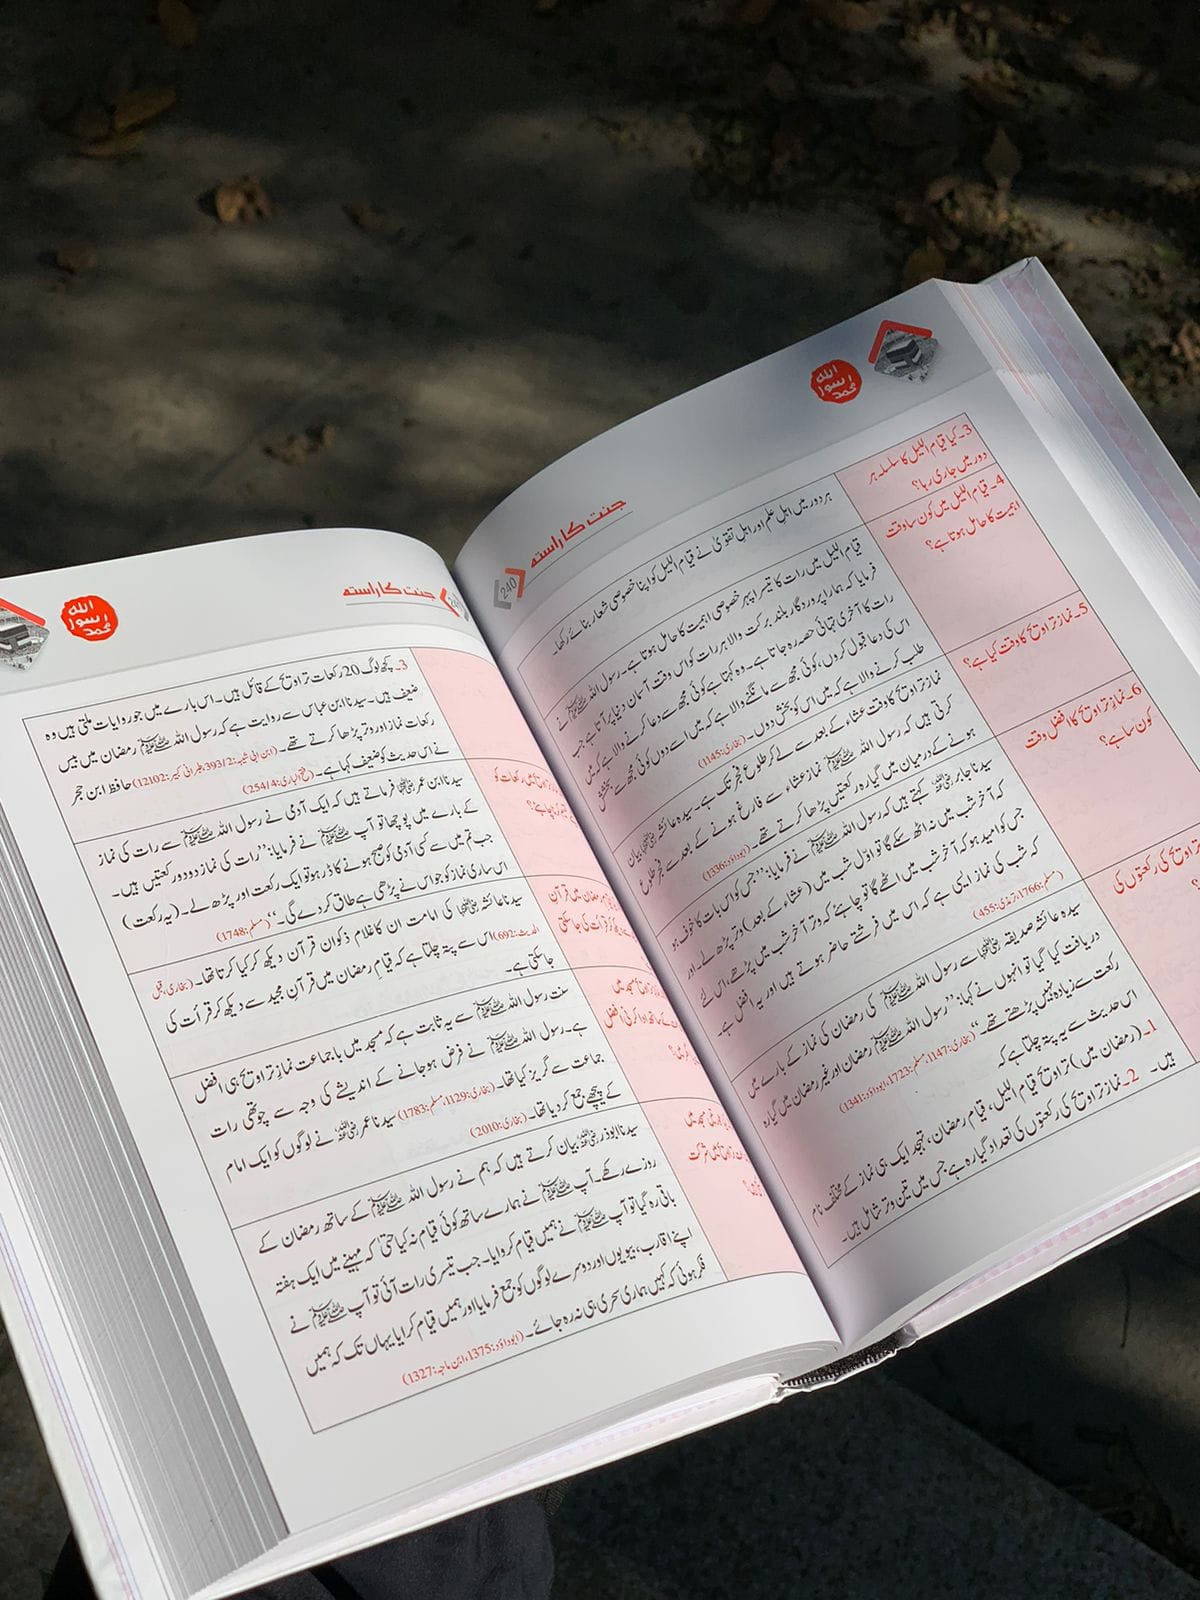 جنت کا راستہ
240
اللہ
رسول
محمد
3۔ کیا قیام اللیل کا سلسلہ ہر
دور میں جاری رہا؟
ہر دور میں اہل علم اور اہل تقویٰ نے قیام اللیل کو اپنا خصوصی شعار بنائے رکھا۔
4۔ قیام اللیل میں کون سا وقت
اہمیت کا حامل ہوتا ہے؟
قیام اللیل میں رات کا تیسرا پہر خصوصی اہمیت کا حامل ہوتا ہے۔ رسول اللہ ﷺ نے
فرمایا کہ ہمارا پروردگار بلند برکت والا ہر رات کو اس وقت آسمان دنیا پر آتا ہے جب
رات کا آخری تہائی حصہ رہ جاتا ہے۔ وہ کہتا ہے کوئی مجھ سے دعا کرنے والا ہے کہ میں
اس کی دعا قبول کروں، کوئی مجھ سے مانگنے والا ہے کہ میں اسے دوں کوئی مجھ سے بخشش
طلب کرنے والا ہے کہ میں اس کو بخش دوں۔ (بخاری:1145)
5۔ نماز تراویح کا وقت کیا ہے؟
نماز تراویح کا وقت عشاء کے بعد سے لے کر طلوع فجر تک ہے۔ سیدہ عائشہ رضی اللہ عنہا بیان
کرتی ہیں کہ رسول اللہ ﷺ نماز عشاء سے فارغ ہونے کے بعد سے فجر طلوع
ہونے کے درمیان میں گیارہ رکعتیں پڑھا کرتے تھے۔ (ابوداؤد:1336)
6۔ نماز تراویح کا افضل وقت
کون سا ہے؟
سیدنا جابر رضی اللہ عنہ کہتے ہیں کہ رسول اللہ ﷺ نے فرمایا: ”جس کو اس بات کا خوف ہو
کہ آخر شب میں نہ اٹھ سکے گا تو اوّل شب میں (عشاء کے بعد) وتر پڑھ لے۔ اور
جس کو امید ہو کہ آخر شب میں اٹھے گا تو چاہئے کہ وتر آخر شب میں پڑھے، اس لئے
کہ شب کی نماز ایسی ہے کہ اس میں فرشتے حاضر ہوتے ہیں اور یہ افضل ہے۔
(مسلم:1766، ترمذی:455)
تراویح کی رکعتوں کی
سیدہ عائشہ صدیقہ رضی اللہ عنہا سے رسول اللہ ﷺ کی رمضان کی نماز کے بارے میں
دریافت کیا گیا تو انہوں نے کہا: ”رسول اللہ ﷺ رمضان اور غیر رمضان میں گیارہ
رکعت سے زیادہ نہیں پڑھتے تھے۔“ (بخاری:1147، مسلم:1723، ابوداؤد:1341)
اس حدیث سے یہ پتہ چلتا ہے کہ
1۔ ((رمضان میں) تراویح قیام اللیل، قیام رمضان، تہجد ایک ہی نماز کے مختلف نام
ہیں۔ 2۔ نماز تراویح کی رکعتوں کی تعداد گیارہ ہے جس میں تین وتر شامل ہیں۔
جنت کا راستہ
اللہ
رسول
محمد
3۔ کچھ لوگ 20 رکعات تراویح کے قائل ہیں۔ اس بارے میں جو روایات ملتی ہیں وہ
ضعیف ہیں۔ سیدنا ابن عباس سے روایت ہے کہ رسول اللہ ﷺ رمضان میں بیس
رکعات نماز اور وتر پڑھا کرتے تھے۔ (ابن ابی شیبہ:393/2، طبرانی کبیر:12102) حافظ ابن حجر
نے اس حدیث کو ضعیف کہا ہے۔ (فتح الباری:254/4)
سیدنا ابن عمر رضی اللہ عنہ فرماتے ہیں کہ ایک آدمی نے رسول اللہ ﷺ سے رات کی نماز
کے بارے میں پوچھا تو آپ ﷺ نے فرمایا: ”رات کی نماز دو دو رکعتیں ہیں۔
جب تم میں سے کسی آدمی کو صبح ہونے کا ڈر ہو تو ایک رکعت اور پڑھ لے۔ (یہ رکعت)
اس ساری نماز کو جو اس نے پڑھی ہے طاق کر دے گی۔“ (مسلم:1748)
سیدنا عائشہ رضی اللہ عنہا کی امامت ان کا غلام ذکوان قرآن دیکھ کر کیا کرتا تھا۔ (بخاری، قبل
الحدیث:692) اس سے پتہ چلتا ہے کہ قیام رمضان میں قرآن مجید سے دیکھ کر قرأت کی
جا سکتی ہے۔
سنت رسول اللہ ﷺ سے یہ ثابت ہے کہ مسجد میں با جماعت نماز تراویح ہی افضل
ہے۔ رسول اللہ ﷺ نے فرض ہو جانے کے اندیشے کی وجہ سے چوتھی رات
جماعت سے گریز کیا تھا۔ (بخاری:1129، مسلم:1783) سیدنا عمر رضی اللہ عنہ نے لوگوں کو ایک امام
کے پیچھے جمع کر دیا تھا۔ (بخاری:2010)
سیدنا ابوذر رضی اللہ عنہ بیان کرتے ہیں کہ ہم نے رسول اللہ ﷺ کے ساتھ رمضان کے
روزے رکھے۔ آپ ﷺ نے ہمارے ساتھ کوئی قیام نہ کیا حتیٰ کہ مہینے میں ایک ہفتہ
باقی رہ گیا تو آپ ﷺ نے ہمیں قیام کروایا۔ جب تیسری رات آئی تو آپ ﷺ نے
اپنے اقارب، بیویوں اور دوسرے لوگوں کو جمع فرمایا اور ہمیں قیام کرایا یہاں تک کہ ہمیں
فکر ہوئی کہ کہیں ہماری سحری ہی نہ رہ جائے۔ (ابوداؤد:1375، ابن ماجہ:1327)